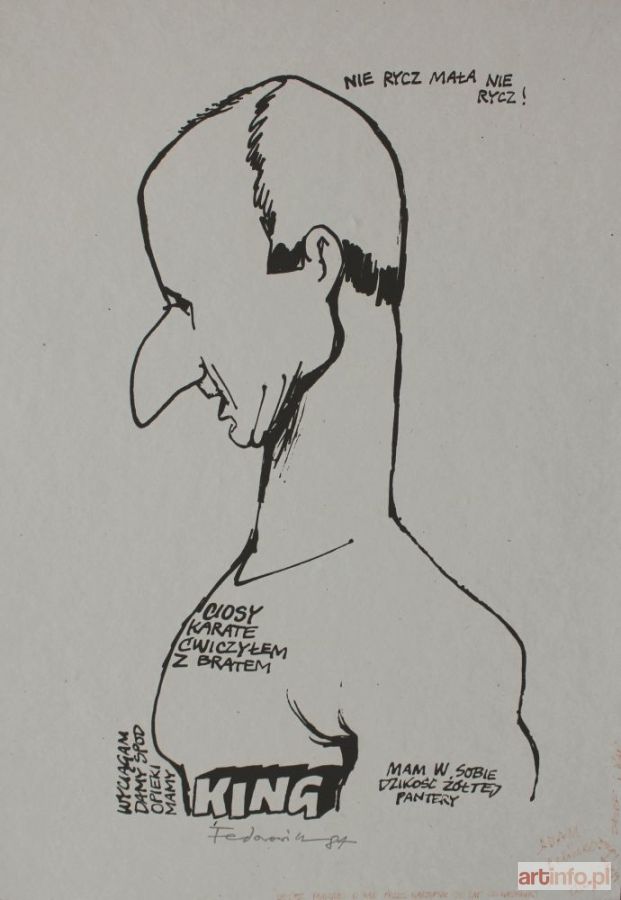 NIE RYCZ MAŁA NIE
RYCZ!
CIOSY
KARATE
ĆWICZYŁEM
Z BRATEM
WYCIĄGAM
DAMY SPOD
OPIEKI
MAMY
KING
MAM W SOBIE
DZIKOŚĆ ŻÓŁTEJ
PANTERY
84
ADAM
artinfo.pl